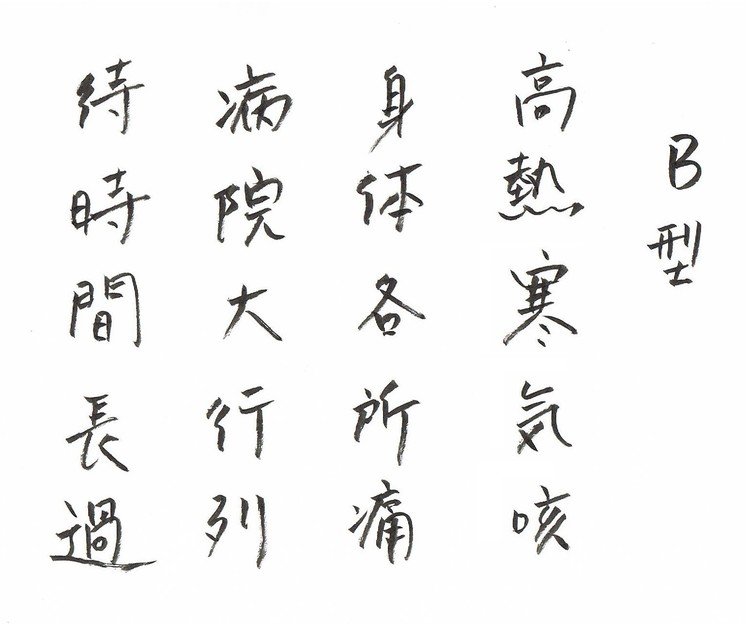 B型
高熱寒気咳
身体各所痛
病院大行列
待時間長過